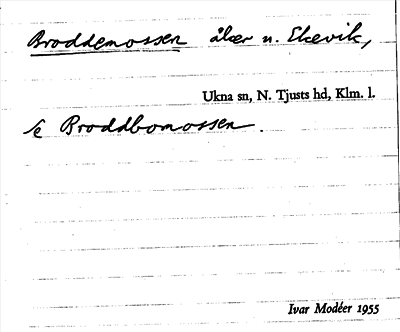 Broddemossen åker u. Ekevik,
Ukna sn, N. Tjusts hd, Klm. l.
Se Broddbomossen.
Ivar Modéer 1955